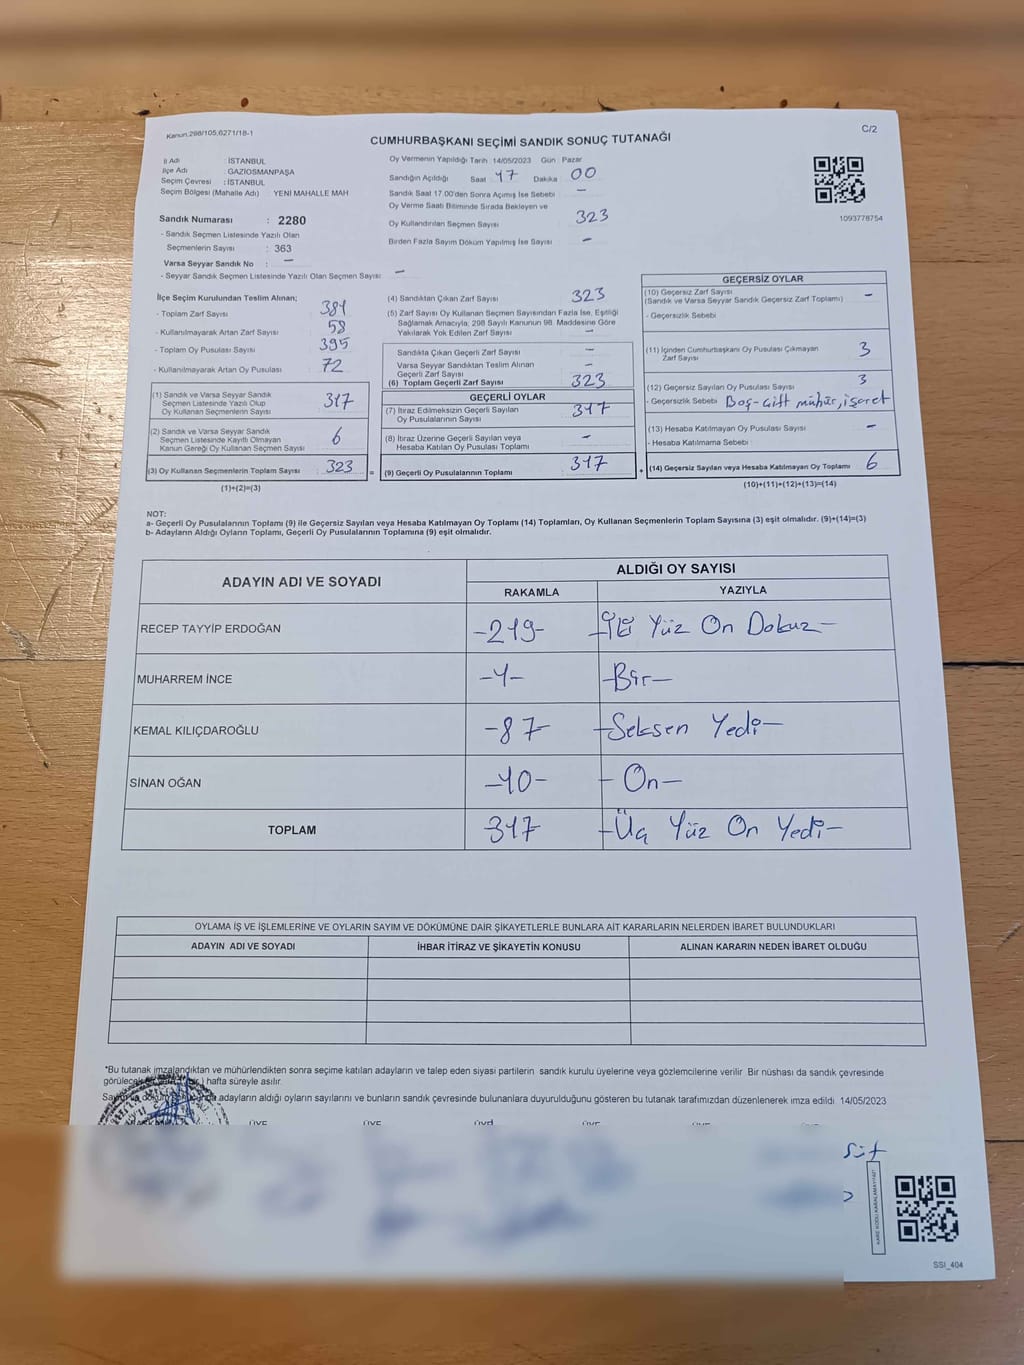 Kanun.298/105,6271/18-1
C/2
CUMHURBAŞKANI SEÇİMİ SANDIK SONUÇ TUTANAĞI
İl Adı : İSTANBUL
İlçe Adı : GAZİOSMANPAŞA
Seçim Çevresi : İSTANBUL
Seçim Bölgesi (Mahalle Adı) : YENİ MAHALLE MAH
Sandık Numarası : 2280
- Sandık Seçmen Listesinde Yazılı Olan
Seçmenlerin Sayısı : 363
Varsa Seyyar Sandık No : –
- Seyyar Sandık Seçmen Listesinde Yazılı Olan Seçmen Sayısı –
Oy Vermenin Yapıldığı Tarih :14/05/2023 Gün : Pazar
Sandığın Açıldığı Saat 17 Dakika 00
Sandık Saat 17.00'den Sonra Açımış İse Sebebi –
Oy Verme Saati Bitiminde Sırada Bekleyen ve
Oy Kullandırılan Seçmen Sayısı 323
Birden Fazla Sayım Döküm Yapılmış İse Sayısı –
1093778754
İlçe Seçim Kurulundan Teslim Alınan;
- Toplam Zarf Sayısı 381
- Kullanılmayarak Artan Zarf Sayısı 58
- Toplam Oy Pusulası Sayısı 395
- Kullanılmayarak Artan Oy Pusulası 72
(1) Sandık ve Varsa Seyyar Sandık
Seçmen Listesinde Yazılı Olup
Oy Kullanan Seçmenlerin Sayısı 317
(2) Sandık ve Varsa Seyyar Sandık
Seçmen Listesinde Kayıtlı Olmayan
Kanun Gereği Oy Kullanan Seçmen Sayısı 6
(3) Oy Kullanan Seçmenlerin Toplam Sayısı 323 =
(1)+(2)=(3)
(4) Sandıktan Çıkan Zarf Sayısı 323
(5) Zarf Sayısı Oy Kullanan Seçmen Sayısından Fazla İse, Eşitliği
Sağlamak Amacıyla; 298 Sayılı Kanunun 98. Maddesine Göre
Yakılarak Yok Edilen Zarf Sayısı –
Sandıkta Çıkan Geçerli Zarf Sayısı –
Varsa Seyyar Sandıktan Teslim Alınan
Geçerli Zarf Sayısı –
(6) Toplam Geçerli Zarf Sayısı 323
GEÇERLİ OYLAR
(7) İtiraz Edilmeksizin Geçerli Sayılan
Oy Pusulalarının Sayısı 317
(8) İtiraz Üzerine Geçerli Sayılan veya
Hesaba Katılan Oy Pusulası Toplamı –
(9) Geçerli Oy Pusulalarının Toplamı 317 +
GEÇERSİZ OYLAR
(10) Geçersiz Zarf Sayısı
(Sandık ve Varsa Seyyar Sandık Geçersiz Zarf Toplamı) –
- Geçersizlik Sebebi
(11) İçinden Cumhurbaşkanı Oy Pusulası Çıkmayan
Zarf Sayısı 3
(12) Geçersiz Sayılan Oy Pusulası Sayısı 3
- Geçersizlik Sebebi Boş-Çift mühür, işaret
(13) Hesaba Katılmayan Oy Pusulası Sayısı –
- Hesaba Katılmama Sebebi :
(14) Geçersiz Sayılan veya Hesaba Katılmayan Oy Toplamı 6
(10)+(11)+(12)+(13)=(14)
NOT:
a- Geçerli Oy Pusulalarının Toplamı (9) ile Geçersiz Sayılan veya Hesaba Katılmayan Oy Toplamı (14) Toplamları, Oy Kullanan Seçmenlerin Toplam Sayısına (3) eşit olmalıdır. (9)+(14)=(3)
b- Adayların Aldığı Oyların Toplamı, Geçerli Oy Pusulalarının Toplamına (9) eşit olmalıdır.
ADAYIN ADI VE SOYADI
ALDIĞI OY SAYISI
RAKAMLA YAZIYLA
RECEP TAYYİP ERDOĞAN -219- -İki Yüz On Dokuz-
MUHARREM İNCE -1- -Bir-
KEMAL KILIÇDAROĞLU -87- -Seksen Yedi-
SİNAN OĞAN -10- -On-
TOPLAM 317 -Üç Yüz On Yedi-
OYLAMA İŞ VE İŞLEMLERİNE VE OYLARIN SAYIM VE DÖKÜMÜNE DAİR ŞİKAYETLERLE BUNLARA AİT KARARLARIN NELERDEN İBARET BULUNDUKLARI
ADAYIN ADI VE SOYADI İHBAR İTİRAZ VE ŞİKAYETİN KONUSU ALINAN KARARIN NEDEN İBARET OLDUĞU
*Bu tutanak imzalandıktan ve mühürlendikten sonra seçime katılan adayların ve talep eden siyasi partilerin sandık kurulu üyelerine veya gözlemcilerine verilir. Bir nüshası da sandık çevresinde
görülecek hafta süreyle asılır.
adayların aldığı oyların sayılarını ve bunların sandık çevresinde bulunanlara duyurulduğunu gösteren bu tutanak tarafımızdan düzenlenerek imza edildi. 14/05/2023
ÜYE ÜYE ÜYE ÜYE ÜYE
SSI_404